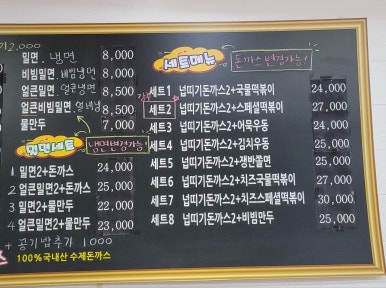 12,000
밀면, 냉면 8,000
비빔밀면, 비빔냉면 8,000
얼큰밀면, 얼큰냉면 8,500
얼큰비빔밀면, 얼비냉 8,500
물만두 7,000
밀면세트
냉면변경가능!
1 밀면2+돈까스 24,000
2 얼큰밀면2+돈까스 25,000
3 밀면2+물만두 22,000
4 얼큰밀면2+물만두 23,000
+ 공기밥추가 1000
100%국내산 수제돈까스
세트메뉴
돈까스변경가능!
세트1 넙띠기돈까스2+국물떡볶이 24,000
세트2 넙띠기돈까스2+스페셜떡볶이 27,000
세트3 넙띠기돈까스2+어묵우동 24,000
세트4 넙띠기돈까스2+김치우동 25,000
세트5 넙띠기돈까스2+쟁반쫄면 25,000
세트6 넙띠기돈까스2+치즈국물떡볶이 27,000
세트7 넙띠기돈까스2+치즈스페셜떡볶이 30,000
세트8 넙띠기돈까스2+비빔만두 25,000